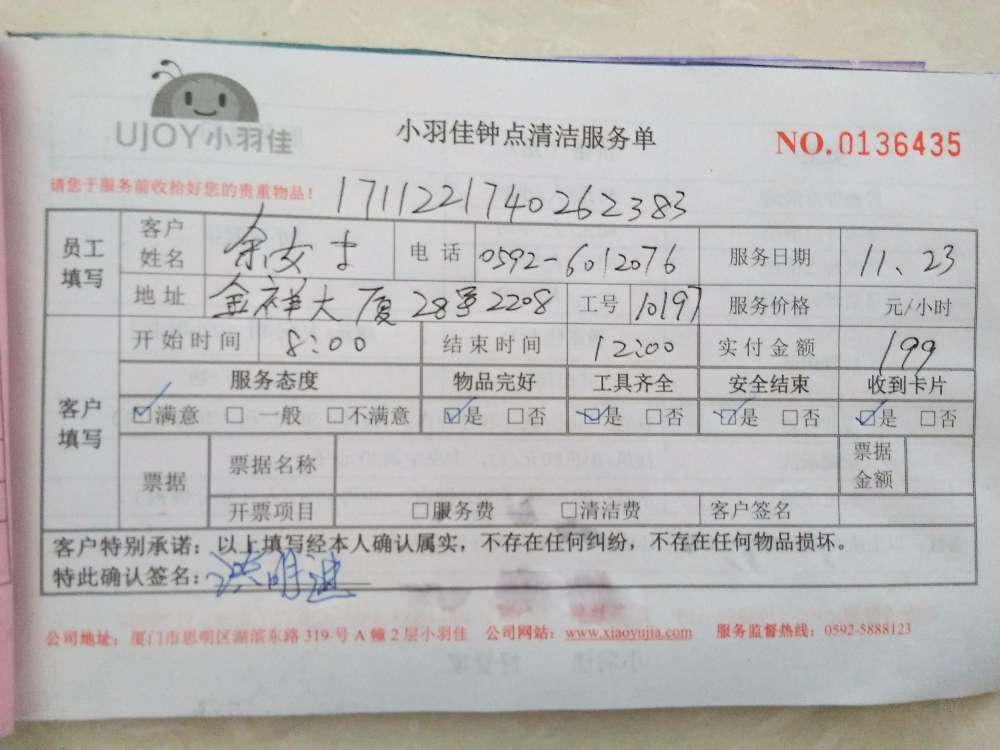 UJOY小羽佳
小羽佳钟点清洁服务单
NO.0136435
请您于服务前收拾好您的贵重物品!
1711221740262383
员工填写 客户姓名 余女士 电话 0592-6012076 服务日期 11.23
地址 金祥大厦28号2208 工号 10197 服务价格 元/小时
客户填写 开始时间 8:00 结束时间 12:00 实付金额 199
服务态度 物品完好 工具齐全 安全结束 收到卡片
☑满意 □一般 □不满意 ☑是 □否 ☑是 □否 ☑是 □否 ☑是 □否
票据 票据名称 票据金额
开票项目 □服务费 □清洁费 客户签名
客户特别承诺:以上填写经本人确认属实,不存在任何纠纷,不存在任何物品损坏。
特此确认签名:洪明进
公司地址:厦门市思明区湖滨东路 319 号 A 幢 2 层小羽佳 公司网站:www.xiaoyujia.com 服务监督热线:0592-5888123